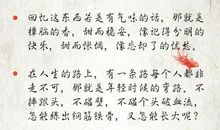 回忆这东西若是有气味的话，那就是
樟脑的香，甜而稳妥，像记得分明的
快乐，甜而怅惘，像忘却了的忧愁。
在人生的路上，有一条路每个人都非
走不可，那就是年轻时候的弯路。不
摔跟头，不碰壁，不碰个头破血流，
怎能炼出钢筋铁骨，又怎能长大呢？